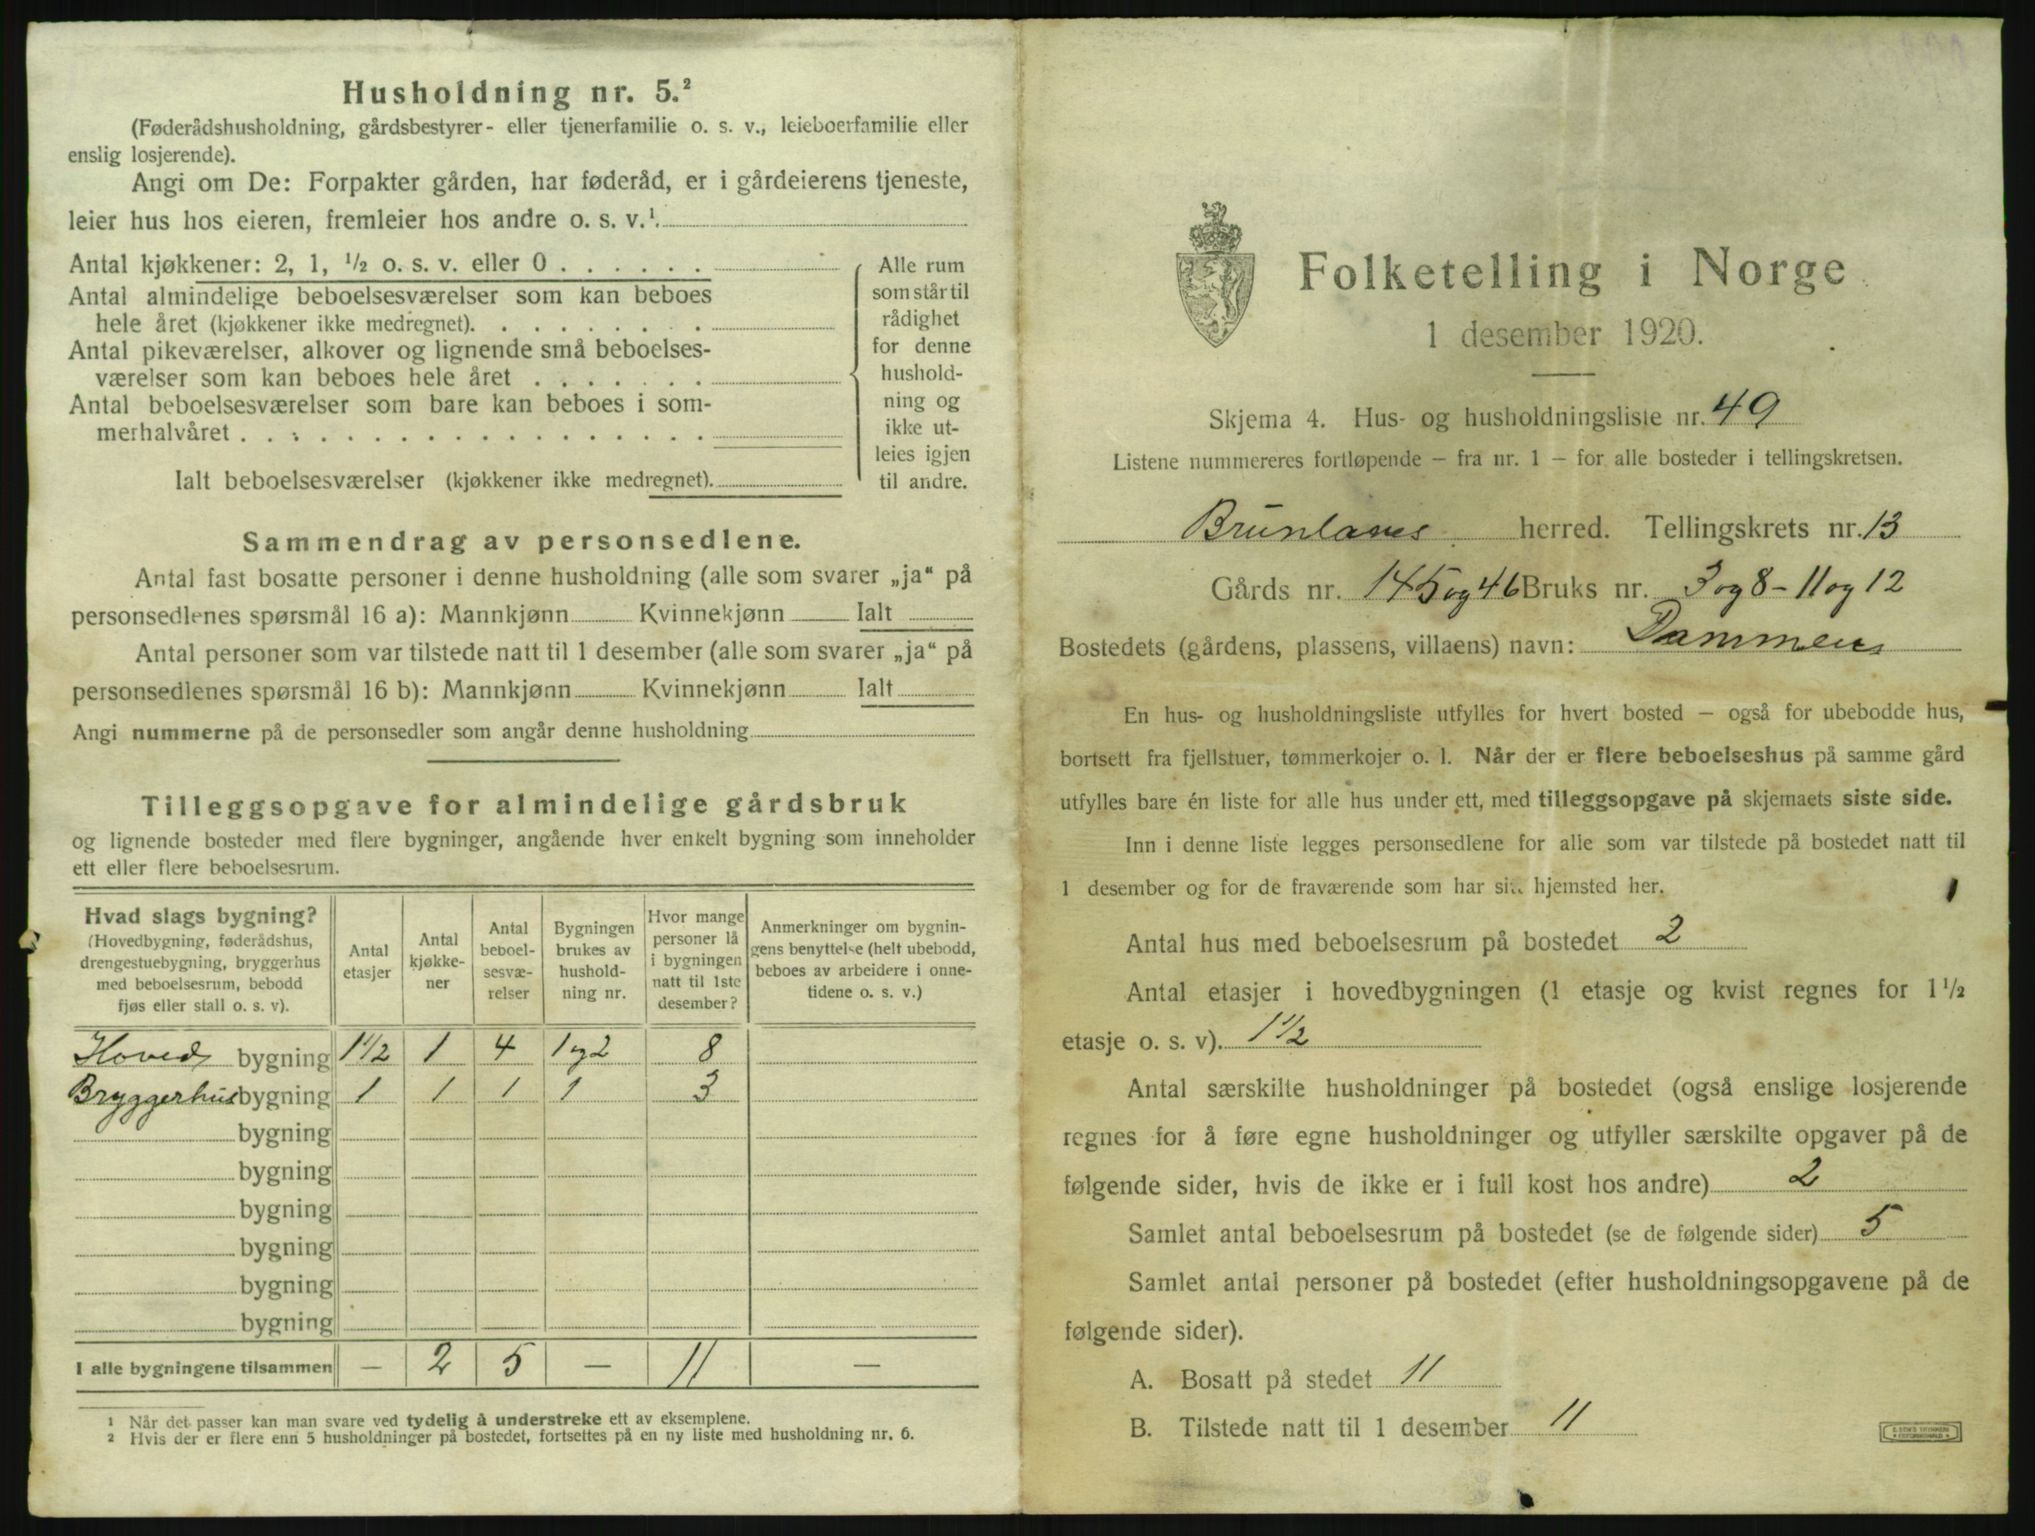 Husholdning nr. 5.²
(Føderådshusholdning, gårdsbestyrer- eller tjenerfamilie o. s. v., leieboerfamilie eller
enslig losjerende).
Angi om De: Forpakter gården, har føderåd, er i gårdeierens tjeneste,
leier hus hos eieren, fremleier hos andre o. s. v.¹.
Antal kjøkkener: 2, 1, ½ o. s. v. eller 0 . . . . . .
Antal almindelige beboelsesværelser som kan beboes
hele året (kjøkkener ikke medregnet). . . . . . . . .
Antal pikeværelser, alkover og lignende små beboelses-
værelser som kan beboes hele året . . . . . . .
Antal beboelsesværelser som bare kan beboes i som-
merhalvåret . . . . . . . . . . . . . . . . . .
Ialt beboelsesværelser (kjøkkener ikke medregnet).
Alle rum
som står til
rådighet
for denne
hushold-
ning og
ikke ut-
leies igjen
til andre.
Sammendrag av personsedlene.
Antal fast bosatte personer i denne husholdning (alle som svarer „ja“ på
personsedlenes spørsmål 16 a): Mannkjønn Kvinnekjønn Ialt
Antal personer som var tilstede natt til 1 desember (alle som svarer „ja“ på
personsedlenes spørsmål 16 b): Mannkjønn Kvinnekjønn Ialt
Angi nummerne på de personsedler som angår denne husholdning
Tilleggsopgave for almindelige gårdsbruk
og lignende bosteder med flere bygninger, angående hver enkelt bygning som inneholder
ett eller flere beboelsesrum.
Hvad slags bygning?
(Hovedbygning, føderådshus,
drengestuebygning, bryggerhus
med beboelsesrum, bebodd
fjøs eller stall o. s. v).
Antal
etasjer
Antal
kjøkke-
ner
Antal
beboel-
sesvæ-
relser
Bygningen
brukes av
hushold-
ning nr.
Hvor mange
personer lå
i bygningen
natt til 1ste
desember?
Anmerkninger om bygnin-
gens benyttelse (helt ubebodd,
beboes av arbeidere i onne-
tidene o. s. v.)
Hoved bygning 1½ 1 4 1 og 2 8
Bryggerhus bygning 1 1 1 1 3
bygning
bygning
bygning
bygning
bygning
bygning
I alle bygningene tilsammen — 2 5 — 11 —
¹ Når det passer kan man svare ved tydelig å understreke ett av eksemplene.
² Hvis der er flere enn 5 husholdninger på bostedet, fortsettes på en ny liste med husholdning nr. 6.
Folketelling i Norge
1 desember 1920.
Skjema 4. Hus- og husholdningsliste nr. 49
Listene nummereres fortløpende — fra nr. 1 — for alle bosteder i tellingskretsen.
Brunlanes herred. Tellingskrets nr. 13
Gårds nr. 145 og 46 Bruks nr. 3 og 8 - 11 og 12
Bostedets (gårdens, plassens, villaens) navn: Dammen
En hus- og husholdningsliste utfylles for hvert bosted — også for ubebodde hus,
bortsett fra fjellstuer, tømmerkojer o. l. Når der er flere beboelseshus på samme gård
utfylles bare én liste for alle hus under ett, med tilleggsopgave på skjemaets siste side.
Inn i denne liste legges personsedlene for alle som var tilstede på bostedet natt til
1 desember og for de fraværende som har sitt hjemsted her.
Antal hus med beboelsesrum på bostedet 2
Antal etasjer i hovedbygningen (1 etasje og kvist regnes for 1½
etasje o. s. v). 1½
Antal særskilte husholdninger på bostedet (også enslige losjerende
regnes for å føre egne husholdninger og utfyller særskilte opgaver på de
følgende sider, hvis de ikke er i full kost hos andre) 2
Samlet antal beboelsesrum på bostedet (se de følgende sider) 5
Samlet antal personer på bostedet (efter husholdningsopgavene på de
følgende sider).
A. Bosatt på stedet 11
B. Tilstede natt til 1 desember 11